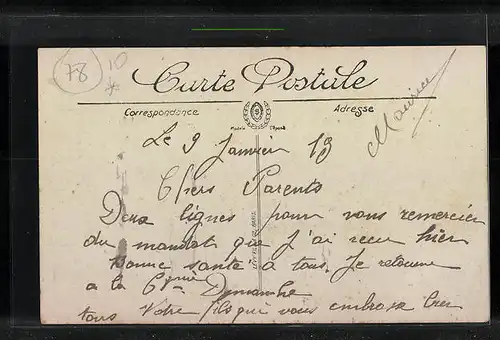 78
10
*
Carte Postale
Correspondance
Adresse
Maurice
Le 9 Janvier 18
Chers Parents
Deux lignes pour vous remercier
du mandat que j'ai recu hier
Bonne santé à tous. Je retourne
a la Cie Dimanche
tous Votre fils que vous embrasse bien